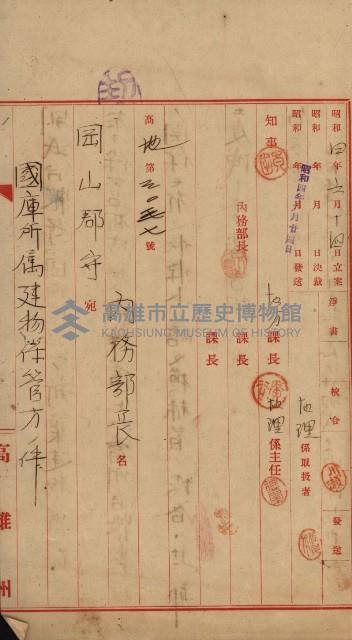 昭和四年六月十四日立案 淨書 校合 發送
昭和 年 月 日決裁
昭和 年 月 日發送
地理係取扱者
知事
內務部長
地方課長
課長
課長
地理係主任
高地第三〇五七號
內務部長名
岡山郡守宛
國庫所屬建物保管方ノ件
高雄州
高雄市立歷史博物館
KAOHSIUNG MUSEUM OF HISTORY